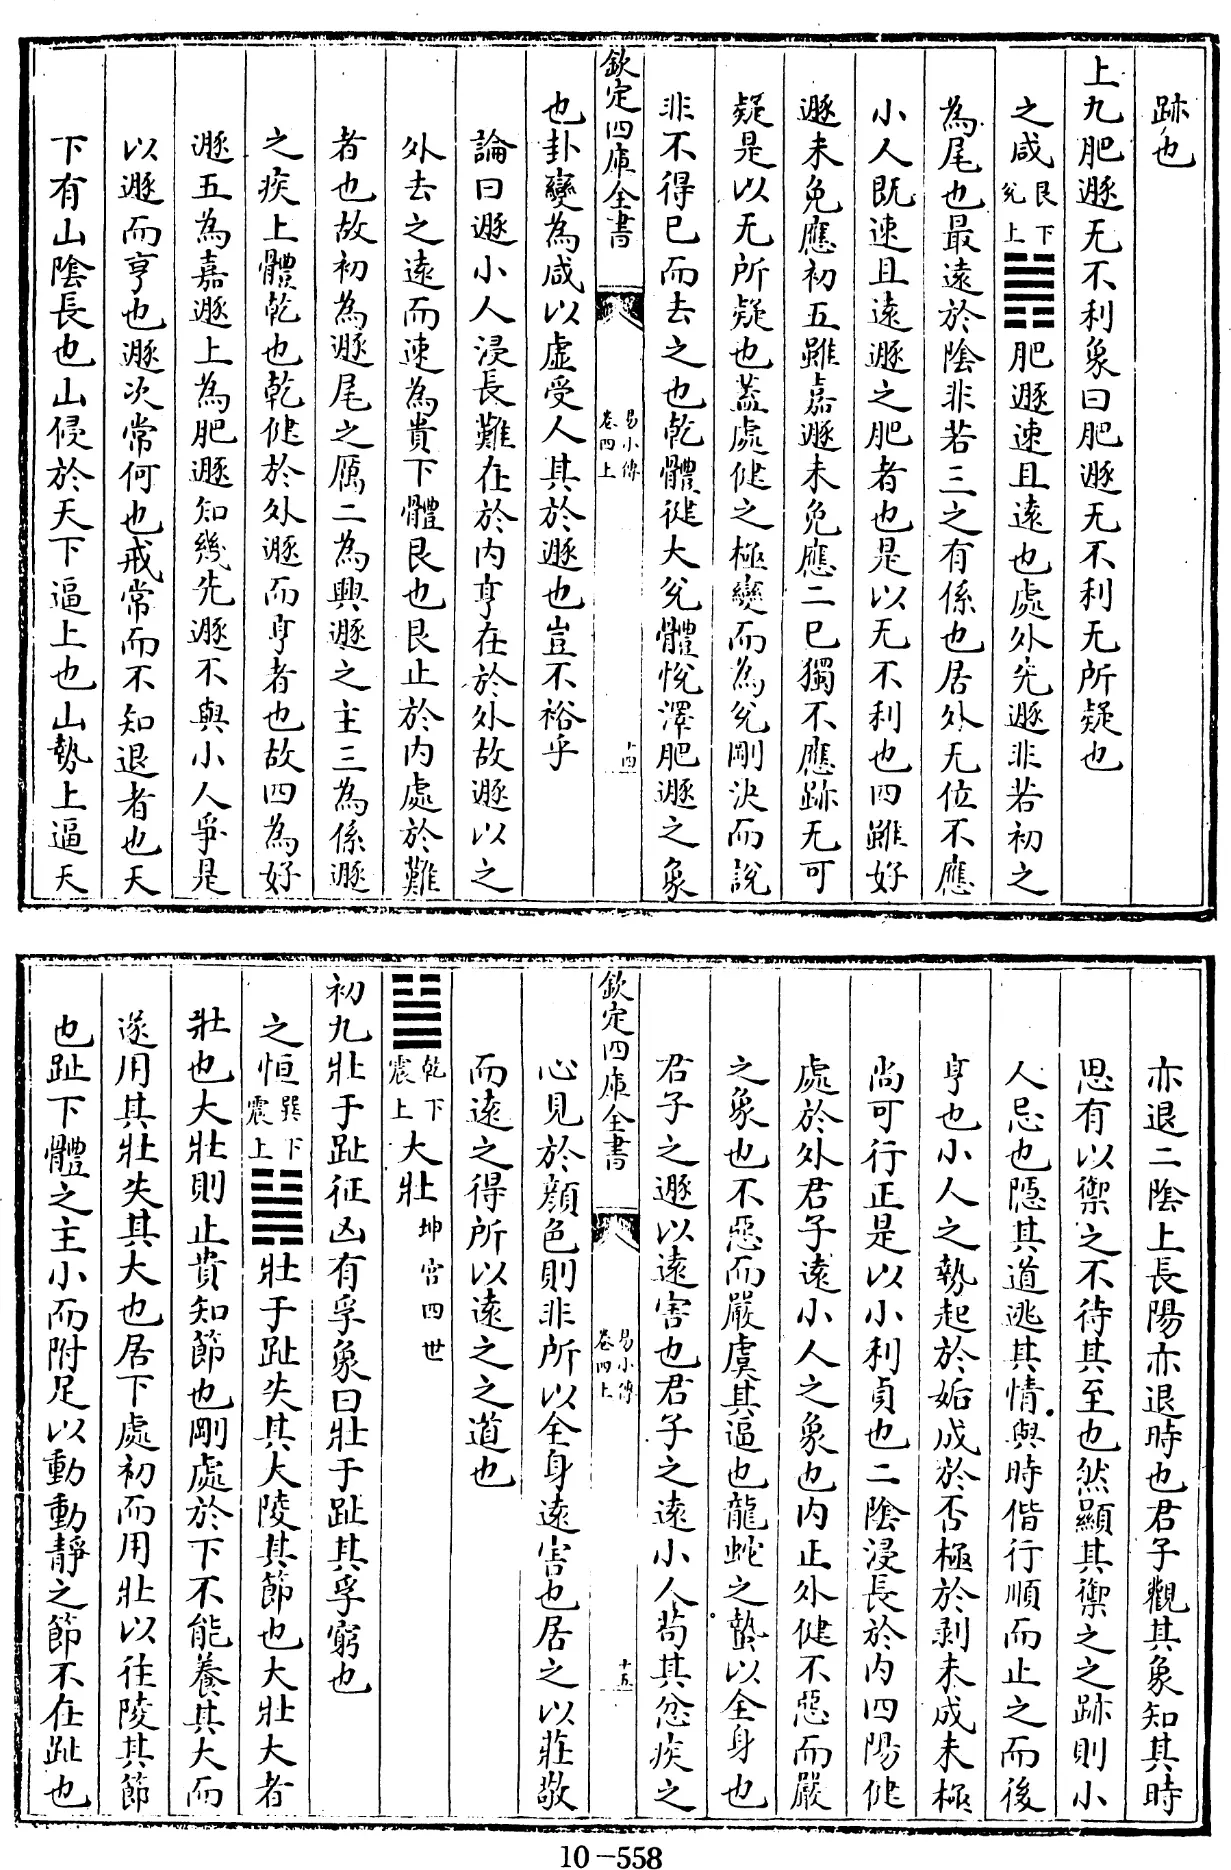 跡也
上九肥遯无不利象曰肥遯无不利无所疑也
之咸艮下兌上肥遯速且遠也處外先遯非若初之
為尾也最遠於陰非若三之有係也居外无位不應
小人既速且遠遯之肥者也是以无不利也四雖好
遯未免應初五雖嘉遯未免應二已獨不應跡无可
疑是以无所疑也蓋處健之極變而為兌剛決而說
非不得已而去之也乾體徤大兌體恱澤肥遯之象
欽定四庫全書
易小傳
卷四上
十四
也卦變為咸以虛受人其於遯也豈不裕乎
論曰遯小人浸長難在於内亨在於外故遯以之
外去之遠而速為貴下體艮也艮止於内處於難
者也故初為遯尾之厲二為興遯之主三為係遯
之疾上體乾也乾健於外遯而亨者也故四為好
遯五為嘉遯上為肥遯知幾先遯不與小人爭是
以遯而亨也遯次常何也戒常而不知退者也天
下有山陰長也山侵於天下逼上也山勢上逼天
亦退二陰上長陽亦退時也君子觀其象知其時
思有以禦之不待其至也然顯其禦之之跡則小
人忌也隱其道逃其情與時偕行順而止之而後
亨也小人之勢起於姤成於否極於剥未成未極
尚可行正是以小利貞也二陰浸長於内四陽健
處於外君子遠小人之象也内止外健不惡而嚴
之象也不惡而嚴虞其逼也龍蛇之蟄以全身也
君子之遯以遠害也君子之遠小人苟其忿疾之
欽定四庫全書
易小傳
卷四上
十五
心見於顔色則非所以全身遠害也居之以莊敬
而遠之得所以遠之之道也
乾下震上大壯坤宫四世
初九壯于趾征凶有孚象曰壯于趾其孚窮也
之恒巽下震上壯于趾失其大陵其節也大壯大者
壯也大壯則止貴知節也剛處於下不能養其大而
遂用其壯失其大也居下處初而用壯以往陵其節
也趾下體之主小而附足以動動靜之節不在趾也
10-558